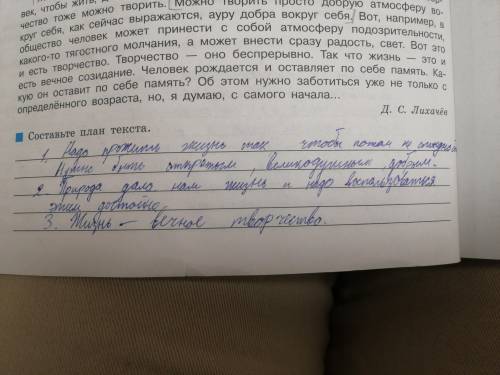 век, чтобы жить, д
чество тоже можно творить. Можно творить просто добрую атмосферу во-
круг себя, как сейчас выражаются, ауру добра вокруг себя. Вот, например, в
общество человек может принести с собой атмосферу подозрительности,
какого-то тягостного молчания, а может внести сразу радость, свет. Вот это
и есть творчество. Творчество — оно беспрерывно. Так что жизнь — это и
есть вечное созидание. Человек рождается и оставляет по себе память. Ка-
кую он оставит по себе память? Об этом нужно заботиться уже не только с
определённого возраста, но, я думаю, с самого начала...
Д. С. Лихачёв
Составьте план текста.
1. Надо прожить жизнь так чтобы потом не
Нужно быть открытым, великодушным добрым.
2. Природа дала нам жизнь и надо воспользоваться
этим достойно.
3. Жизнь – вечное творчество.